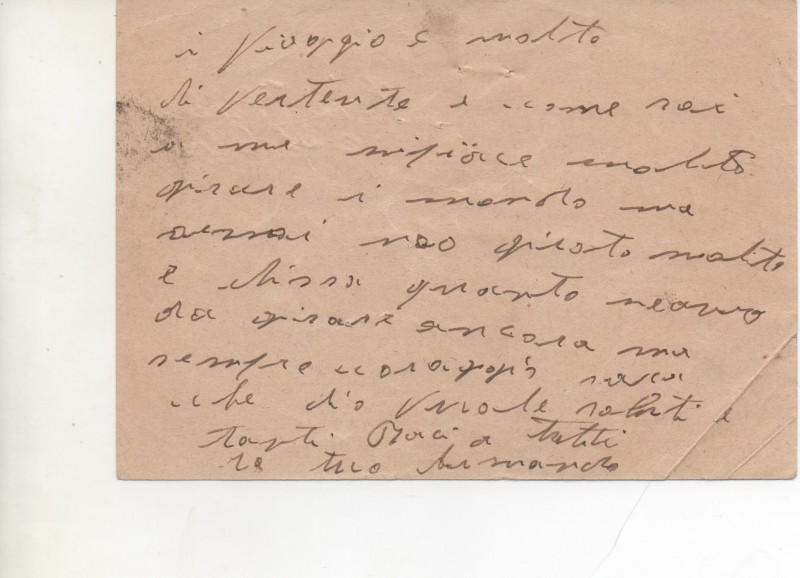 i Viaggio e molto
di Vertente e come sai
a me mi piace molto
girare i mondo ma
ormai no girato molto
e chissa quanto neavro
da girare ancora ma
sempre coraggio sara
che dio Vuole saluti e
tanti Baci a tutti
tuo Armando